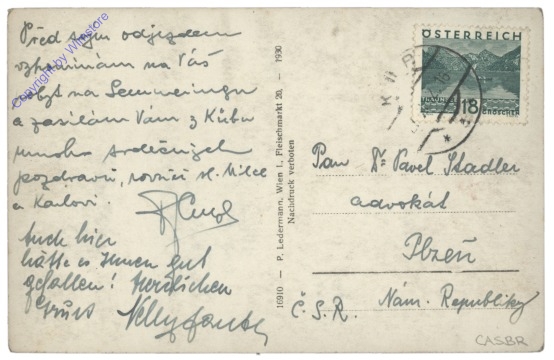 Před svým odjezdem
vzpomínám na Váš
pobyt na Semmeringu
a zasílám Vám z Kübu
mnoho srdečných
pozdravů, rovněž sl. Milce
a Karlovi.
Auch hier
hätte es Ihnen gut
gefallen! Herzlichen
Gruss Nelly
Copyright by Winstore
16910 – P. Ledermann, Wien I., Fleischmarkt 20, – 1930
Nachdruck verboten
ÖSTERREICH
18
GROSCHEN
KÜB
Pan Dr Pavel Stadler
advokát
Plzeň
Nám. Republiky
Č.S.R.
CASBR